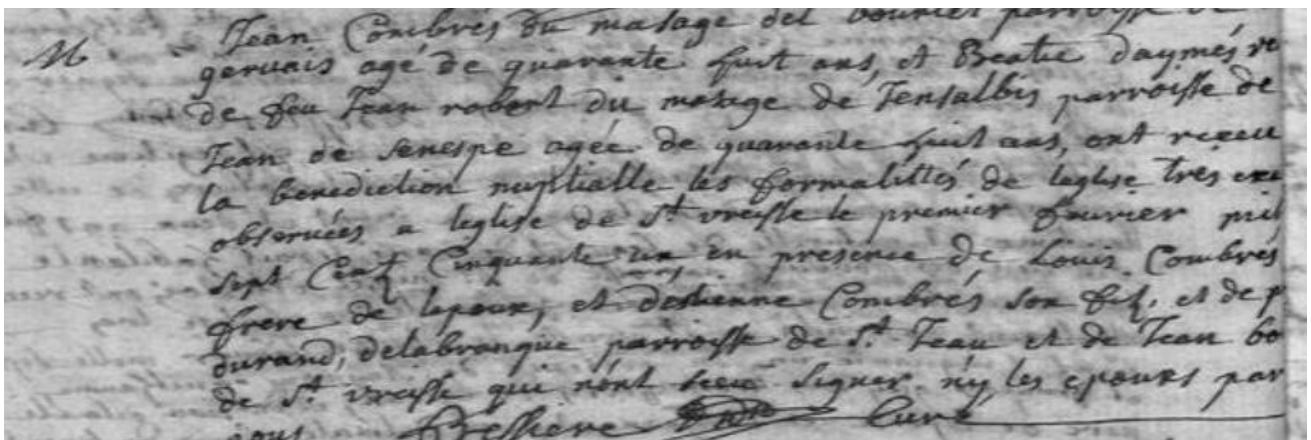 M
Jean Combrés du masage del bouries parroisse de
gervais agé de quarante huit ans, et Beatie daymés ve
de feu Jean robert du masage de Jensalbis parroisse de
Jean de senespe agée de quarante huit ans, ont receu
la benediction nuptialle les formalittés de leglise tres exa
observées a leglise de St vreisse le premier fevrier mil
sept Cent Cinquante un en presence de Louis Combrés
frere de lepoux, et déstienne Combrés son fils, et de p
durand, delabranque parroisse de St Jean et de Jean bo
de St vreisse qui nónt sceu signer ny les epoux par
nous Bessiere Curé